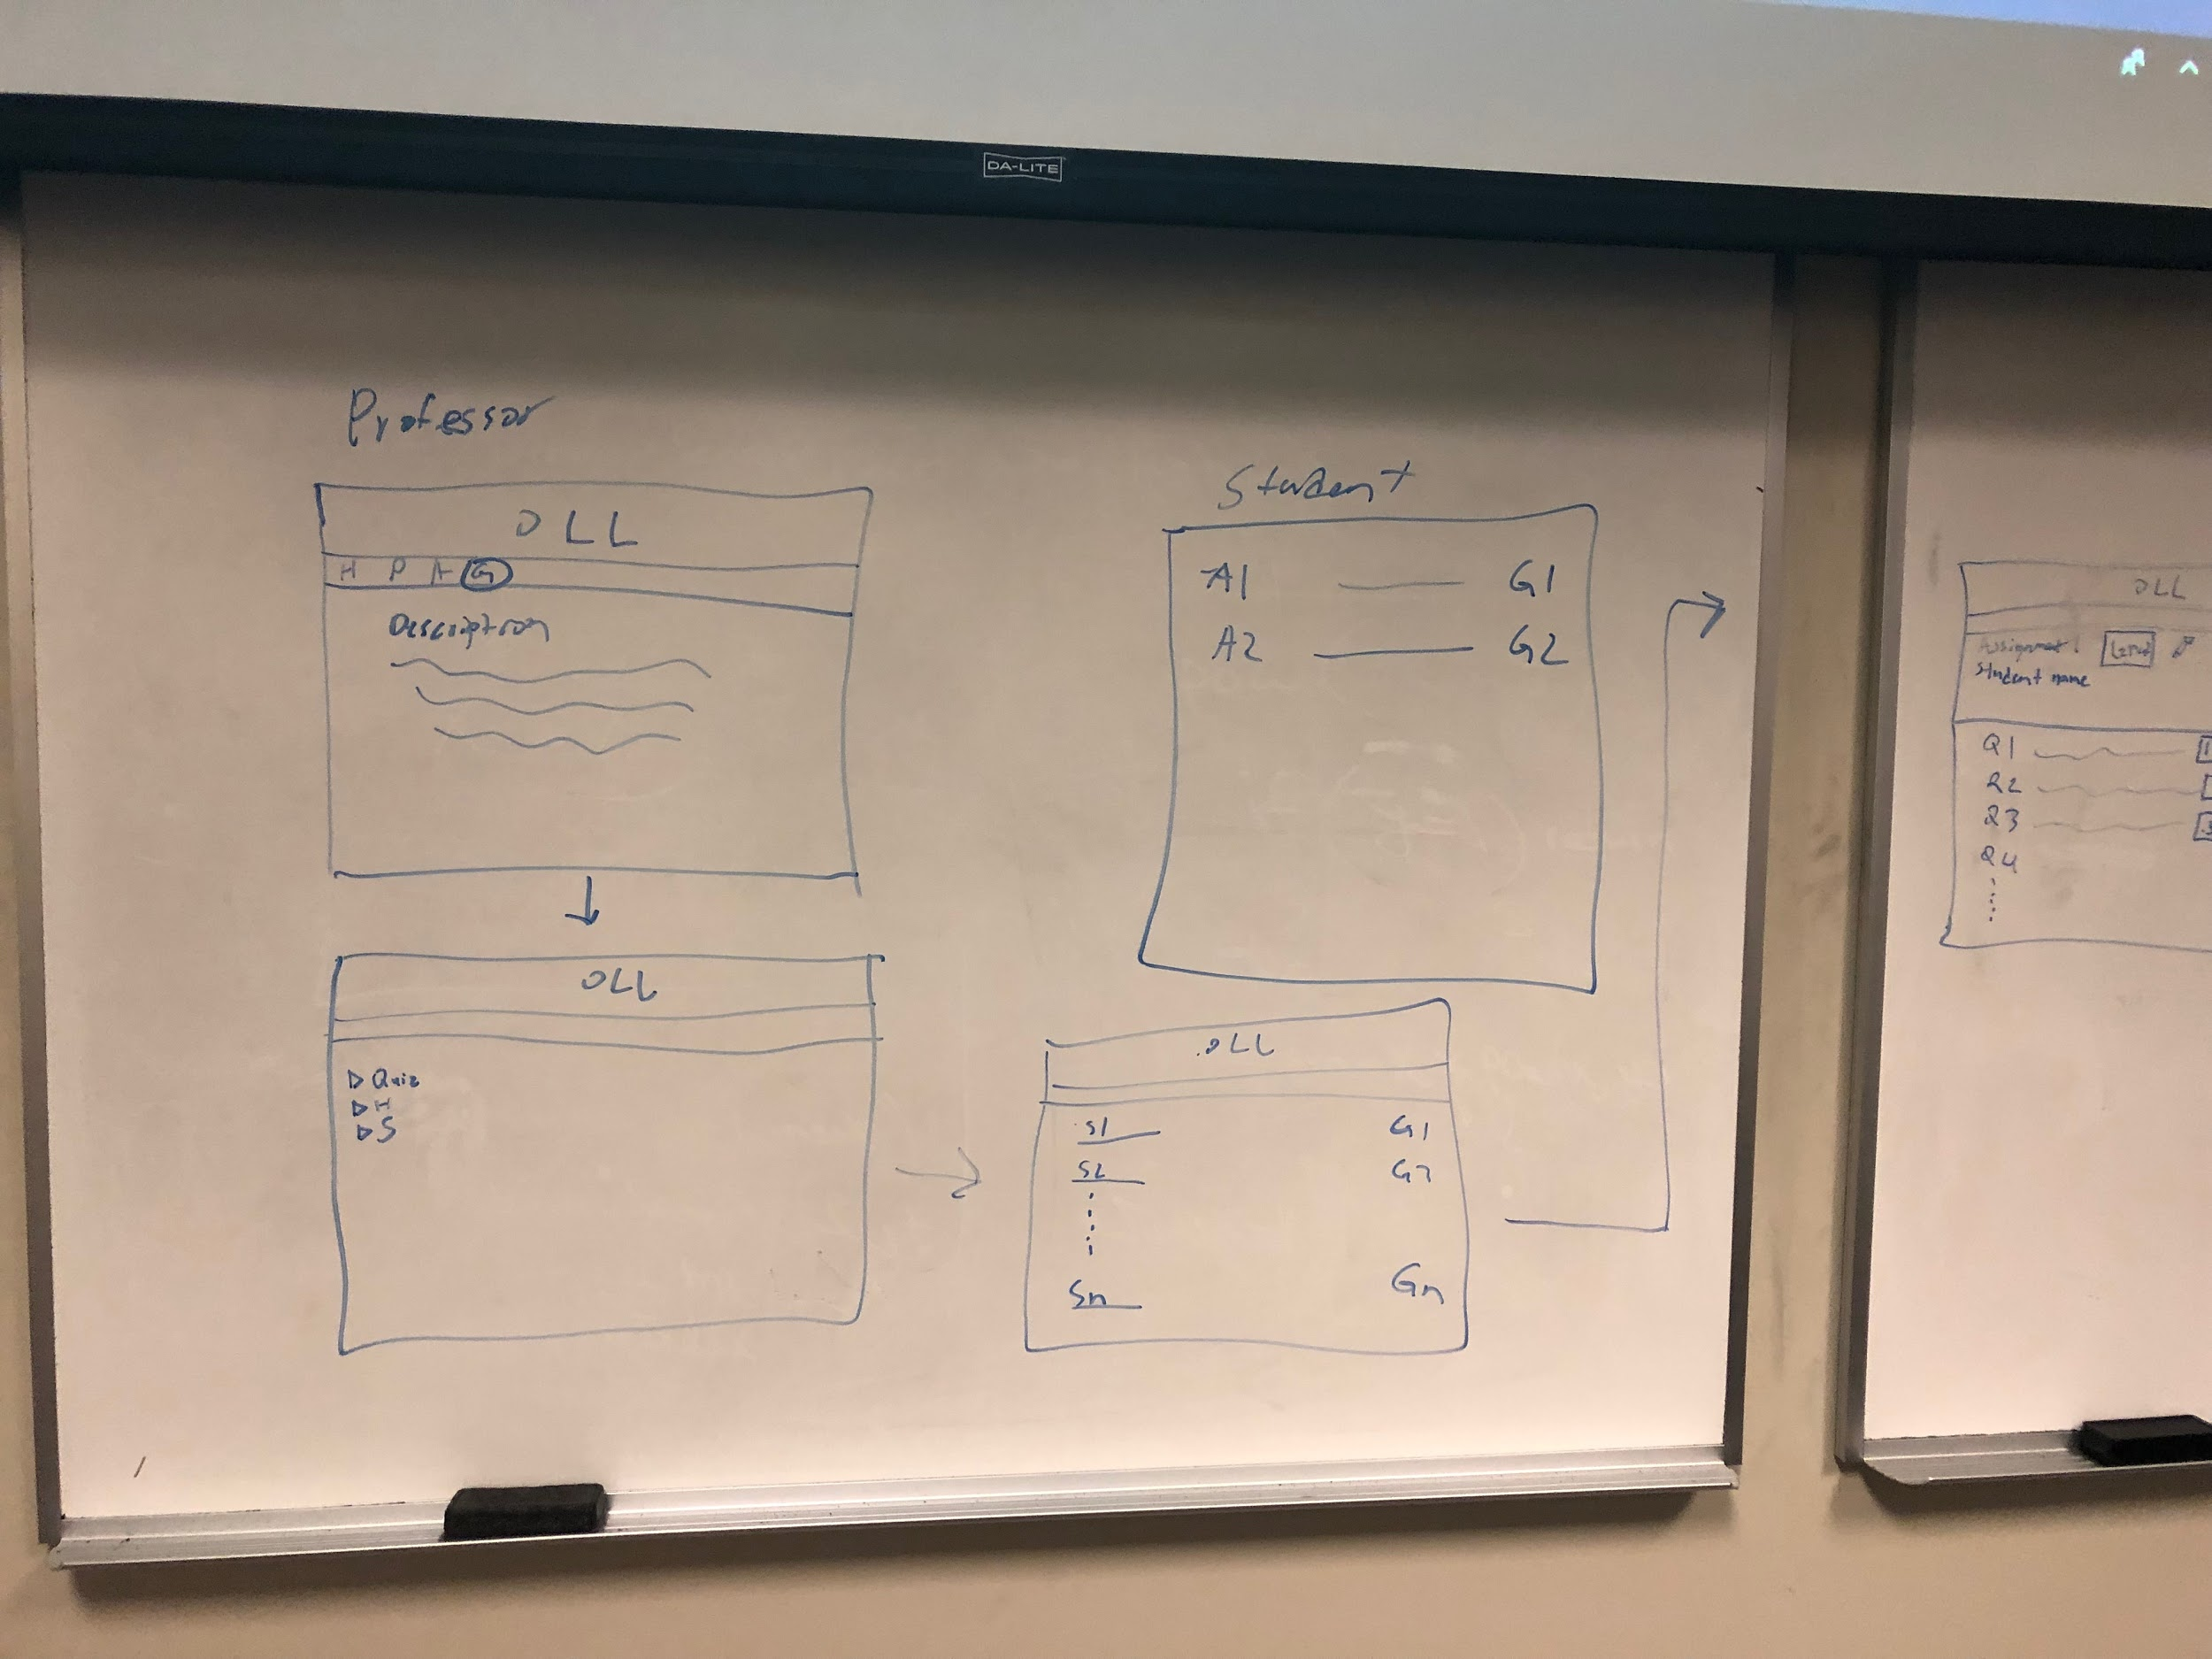 DA-LITE
Professor
DLL
H P A G
Description
DLL
Quiz
H
S
Student
A1 G1
A2 G2
DLL
S1 G1
S2 G2
Sn Gn
DLL
Assignment 1
Student name
Q1
Q2
Q3
Q4